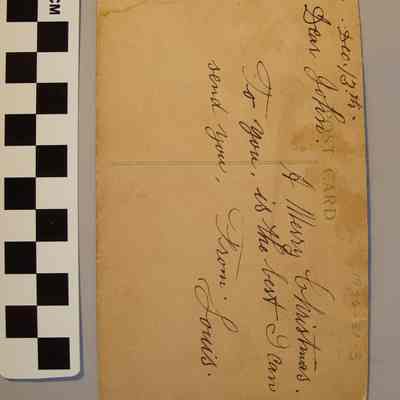 CM
Dec. 13th.
Dear John.
POST CARD
A Merry Christmas.
To you, is the best I can
send you. From. Louis.